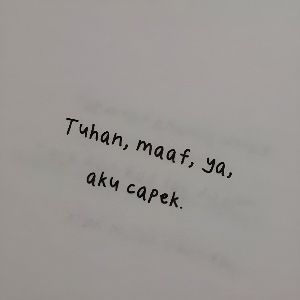 Tuhan, maaf, ya,
aku capek.